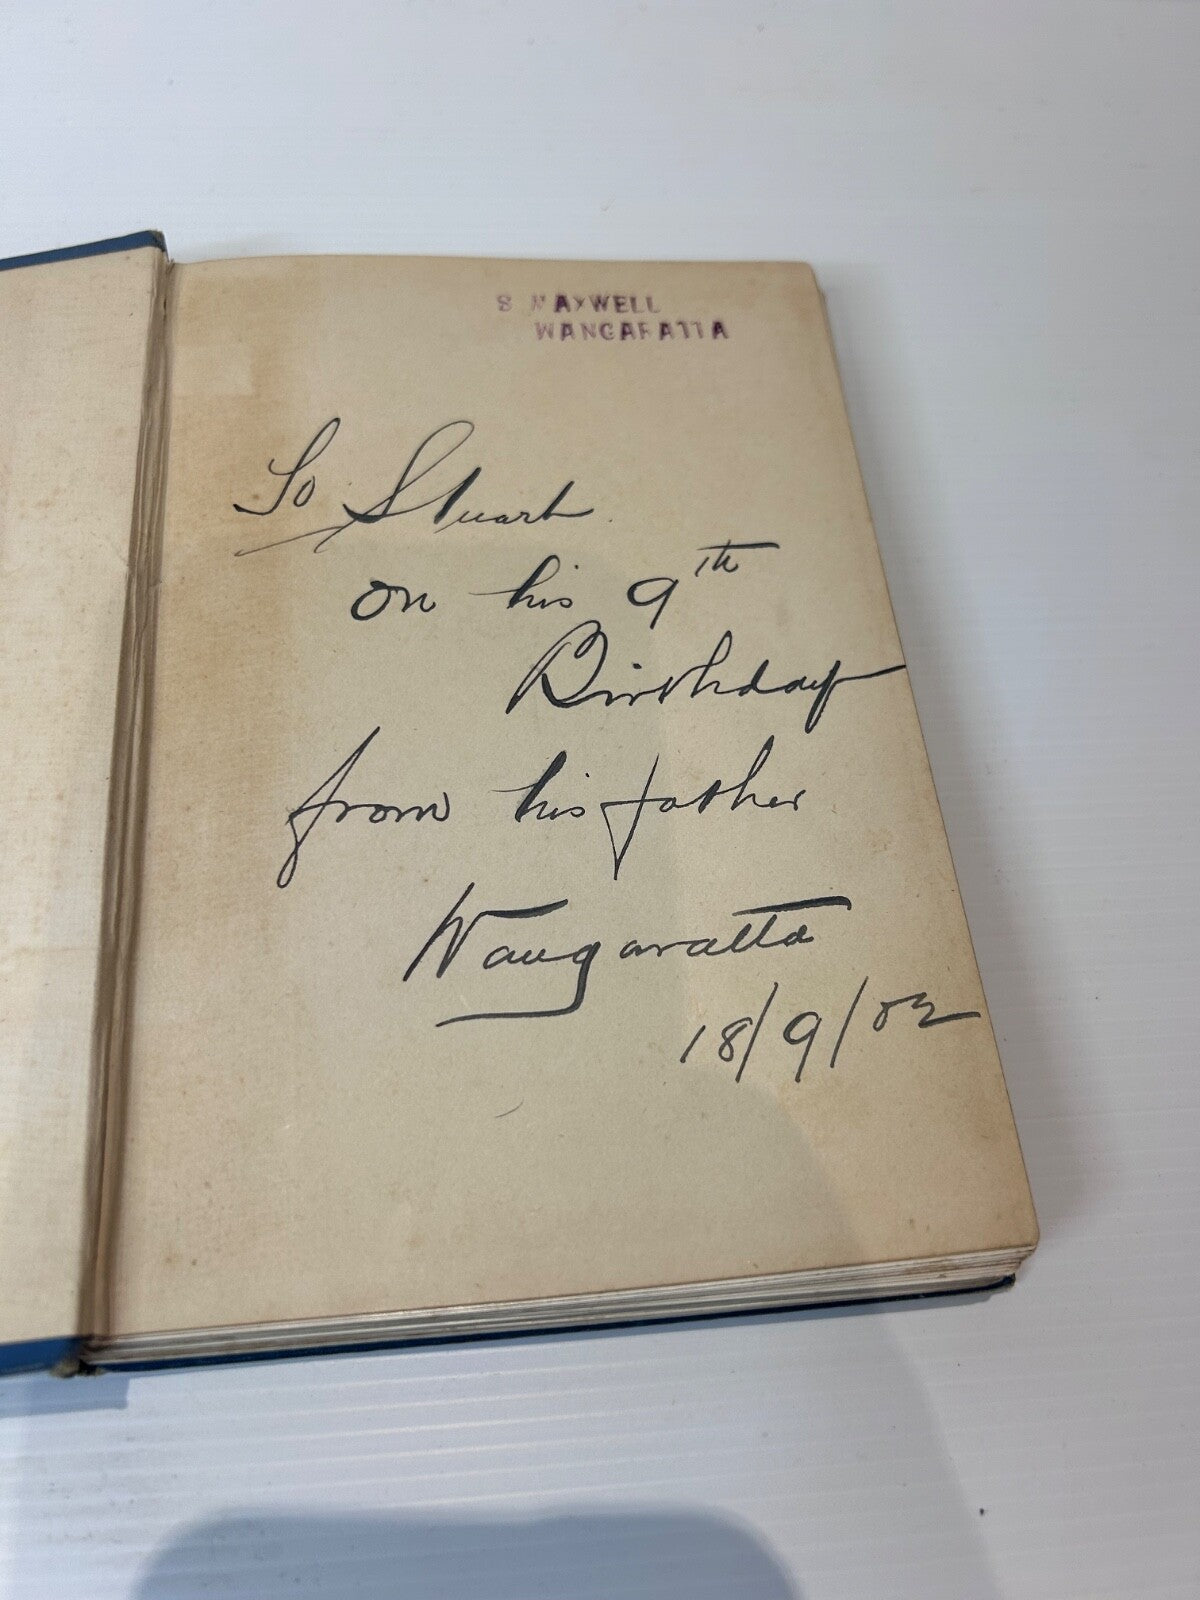 S MAXWELL
WANGARATTA
To Stuart.
on his 9th
Birthday
from his father
Wangaratta
18/9/